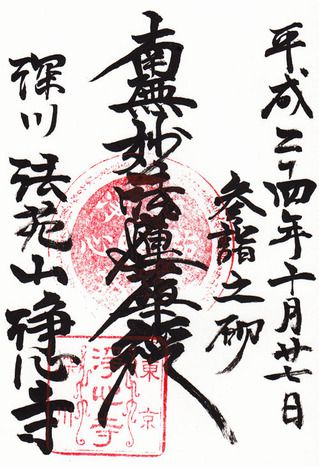 平成二十四年十月廿七日
参詣之砌
南無妙法蓮華経
深川 法苑山 浄心寺
東京
浄心寺
深川